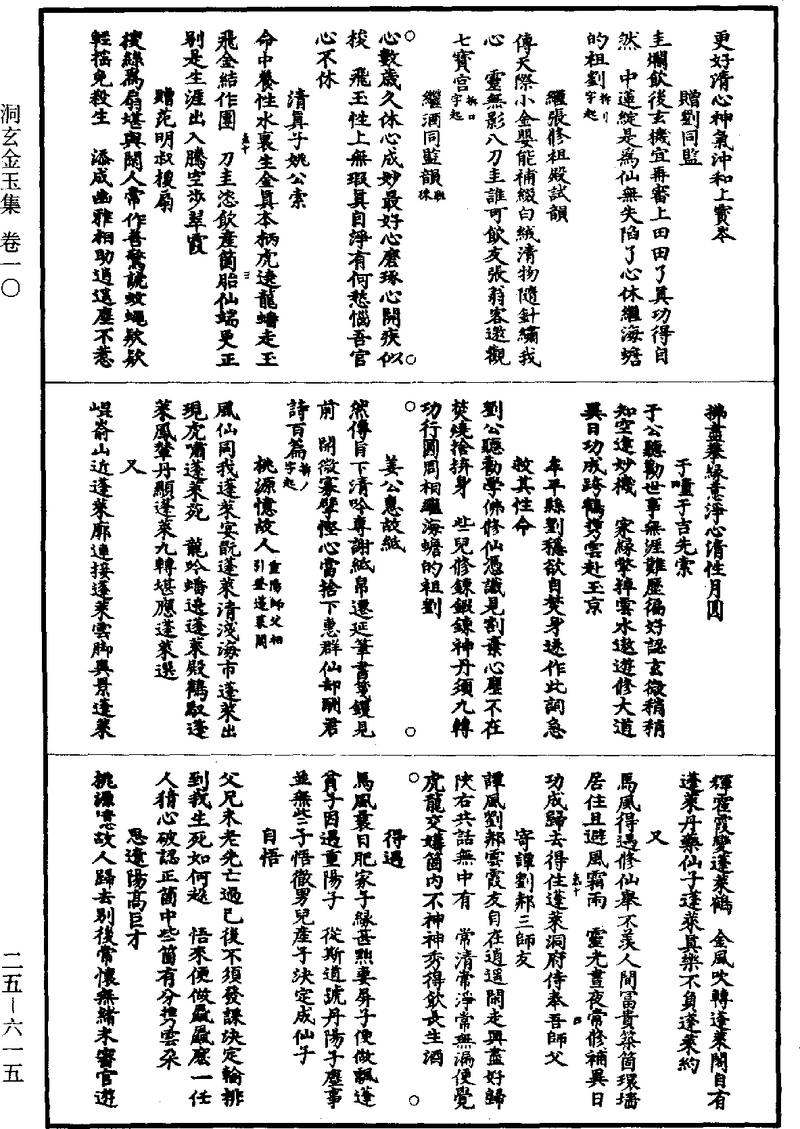 更好清心神氣沖和上寶岑
贈劉同監
圭爛飲後玄機宜再審上田田了真功得自
然 中蓮綻是為仙無失陷了心休繼海蟾
的祖劉拆刂字起
繼張修祖殿試韻
傳天際小金嬰能補綴白絨清物隨針繡我
心 靈無影八刀圭誰可飲友張翁客邀觀
七寶宮拆口字起
繼酒同監韻
心數歲久休心成妙最好心磨琢心開疾似
梭 飛玉性上無瑕真自淨有何愁惱吾官
心不休
清算子姚公索
命中養性水裏生金真本柄虎遶龍蟠走玉
飛金結作團 刀圭恣飲產箇胎仙端更正
別是生涯出入騰空步翠霞
贈范明叔椶扇
椶絲為扇堪與閑人常作善驚諕蚊蠅欵欵
輕搖免殺生 添成幽雅相助逍遙塵不惹
拂盡攀緣意淨心清性月圓
于公聽勸世事無涯難歷徧好認玄微稍稍
知空達妙機 家緣棄掉雲水遨遊修大道
異日功成跨鶴攜雲赴玉京
牟平縣劉穩欲自焚身遂作此詞急
救其性命
劉公聽勸學佛修仙憑識見割棄心塵不在
焚燒捨擠身 些兒修鍊鍛鍊神丹須九轉
功行圓周相繼海蟾的祖劉
姜公惠故紙
然傳旨下清吟專謝紙帛還延筆書箋鑊見
前 開微寡孽慳心當捨下惠群仙却酬君
詩百篇拆丿字起
桃源憶故人重陽師父相引登蓬萊閣
風仙同我蓬萊宴既蓬萊清淺海市蓬萊出
現虎嘯蓬萊苑 龍吟蟠遶蓬萊殿鶴馭蓬
萊鳳輦丹顯蓬萊九轉堪應蓬萊選
又
崐嵛山近蓬萊廓連接蓬萊雲脚興景蓬萊
輝霍霞變蓬萊鶴 金風吹轉蓬萊閣自有
蓬萊丹藥仙子蓬萊真樂不負蓬萊約
又
馬風得遇修仙舉不羨人間富貴築箇環墻
居住且避風霜雨 靈光晝夜常修補異日
功成歸去得住蓬萊洞府侍奉吾師父
寄譚劉郝三師友
譚風劉郝雲霞友自在逍遥閑走興盡好歸
陝右共話無中有 常清常淨常無漏便覺
虎龍交媾箇內不神神秀得飲長生酒
得遇
馬風曩日肥家子緣甚㸃妻屏子便做飄蓬
貧子因遇重陽子 從斯道號丹陽子塵事
並無些子悟徹男兒產子決定成仙子
自悟
父兄未老先亡過已後不須發課決定輪排
到我生死如何趓 悟來便做巖巖麽一任
人猜心破認正箇中些箇有分攜雲朵
思遼陽高巨才
桃源憶故人歸去別後常懷無緒未審官遊
洞玄金玉集 卷一〇
二五—六一五